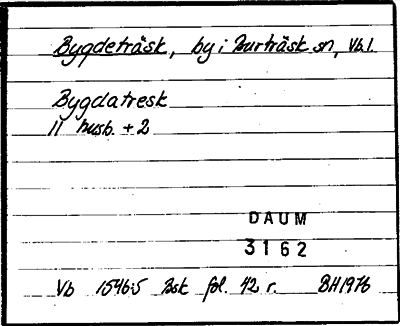 Bygdeträsk, by i Burträsk sn, Vb.l.
Bygdatresk
11 husb. + 2
DAUM
3162
Vb 1546:5 Bsk fol. 42 r. BH1976